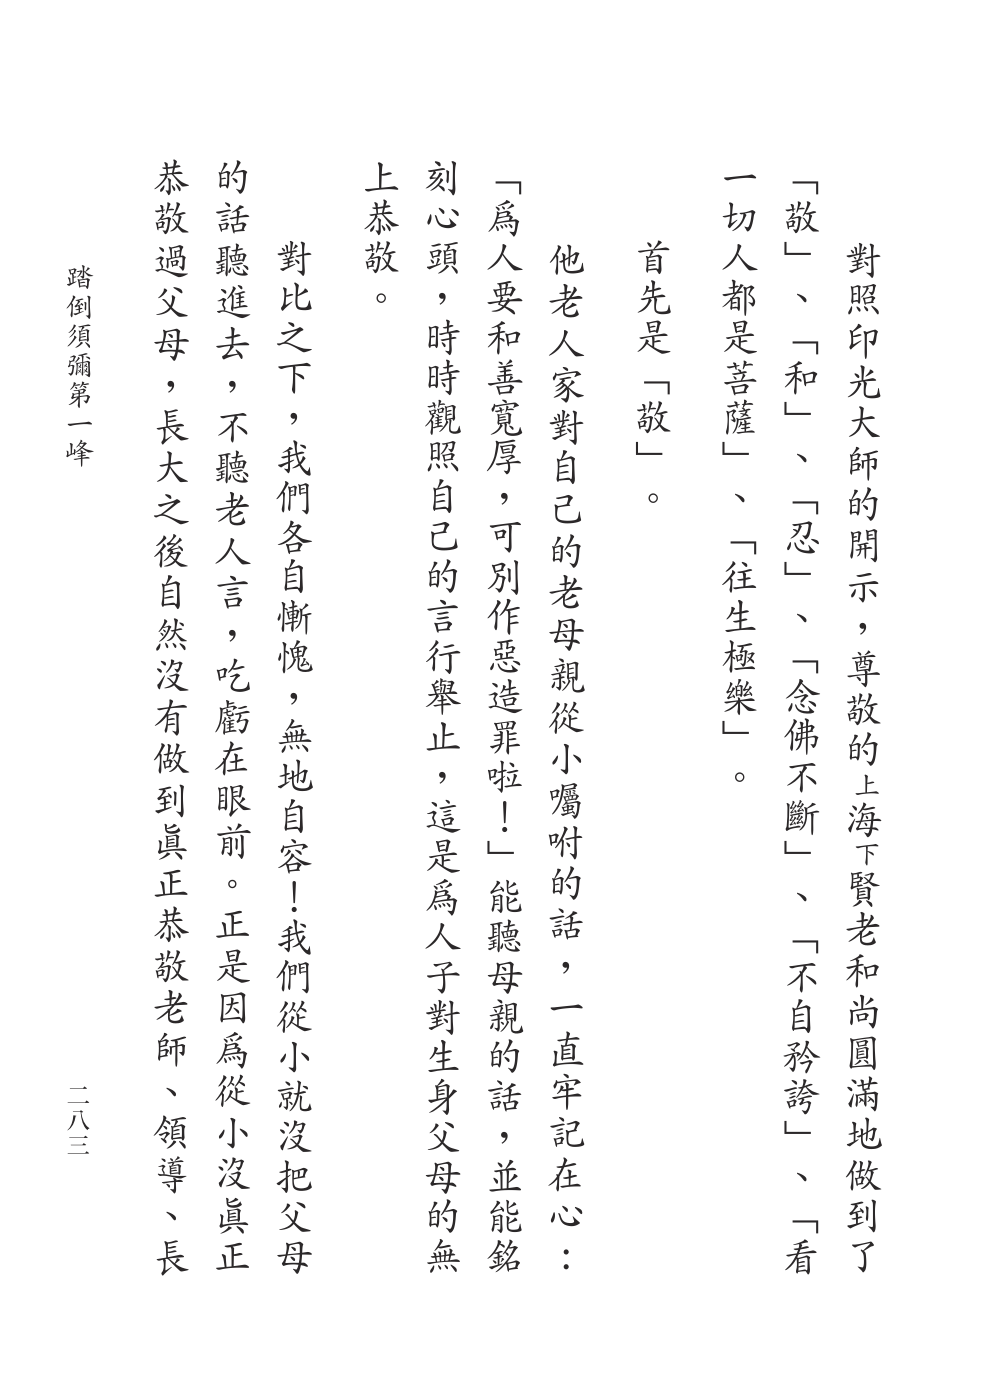 對照印光大師的開示，尊敬的上海下賢老和尚圓滿地做到了
「敬」、「和」、「忍」、「念佛不斷」、「不自矜誇」、「看
一切人都是菩薩」、「往生極樂」。
首先是「敬」。
他老人家對自己的老母親從小囑咐的話，一直牢記在心：
「爲人要和善寬厚，可別作惡造罪啦！」能聽母親的話，並能銘
刻心頭，時時觀照自己的言行舉止，這是爲人子對生身父母的無
上恭敬。
對比之下，我們各自慚愧，無地自容！我們從小就沒把父母
的話聽進去，不聽老人言，吃虧在眼前。正是因爲從小沒眞正
恭敬過父母，長大之後自然沒有做到眞正恭敬老師、領導、長
踏倒須彌第一峰
二八三